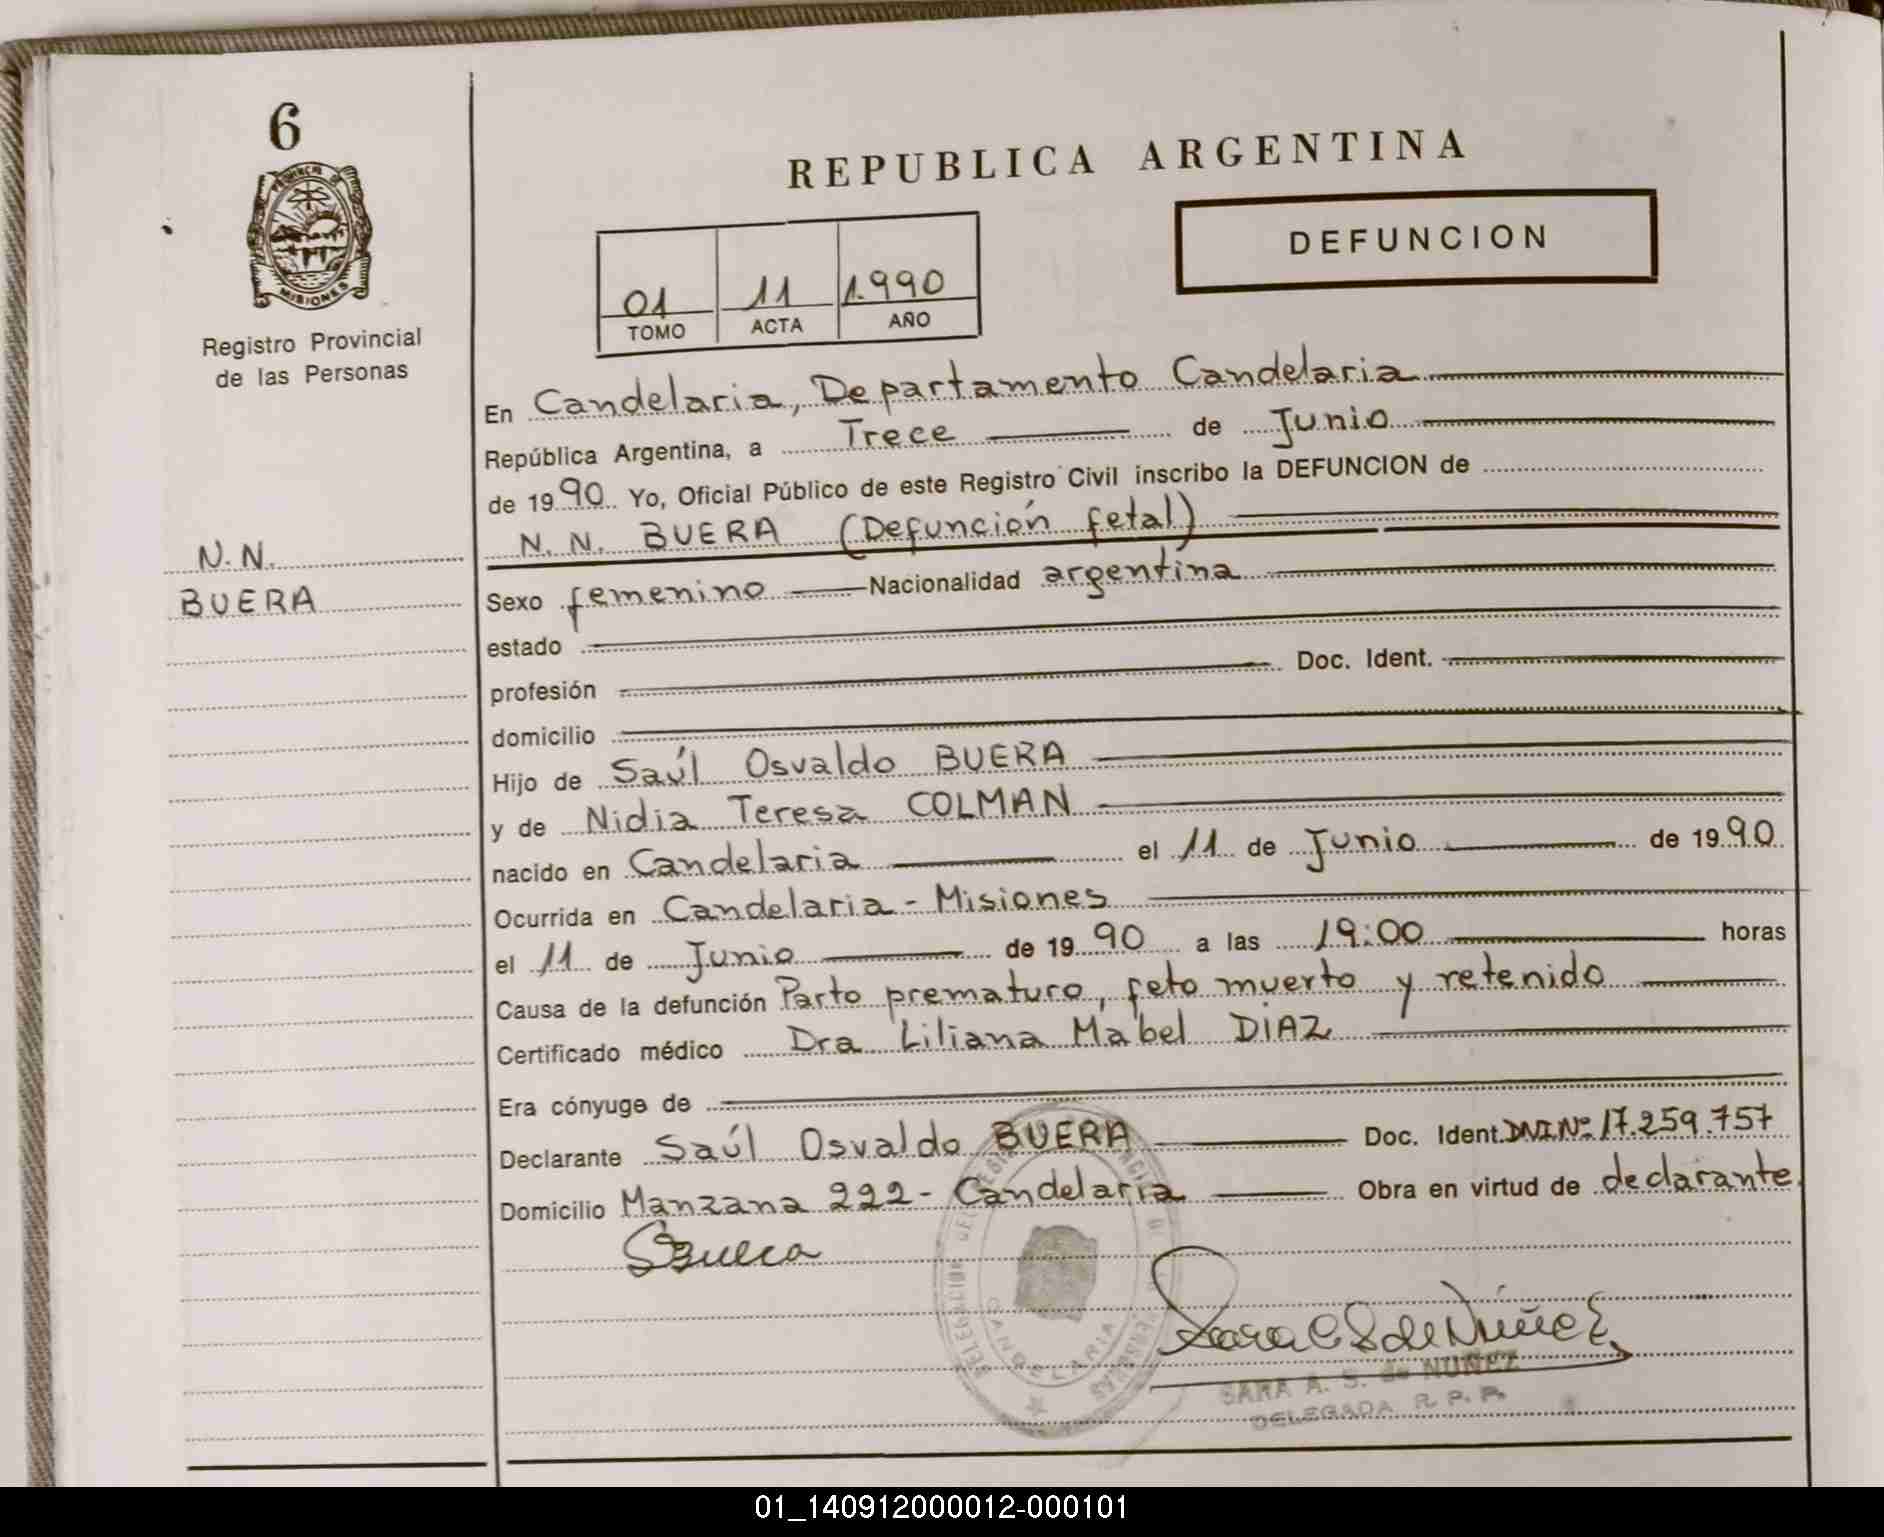 6
PROVINCIA DE
MISIONES
Registro Provincial
de las Personas
N.N.
BUERA
REPUBLICA ARGENTINA
DEFUNCION
01 11 1.990
TOMO ACTA AÑO
En Candelaria, Departamento Candelaria
República Argentina, a Trece de Junio
de 1990 Yo, Oficial Público de este Registro Civil inscribo la DEFUNCION de
N. N. BUERA (Defunción fetal)
Sexo femenino Nacionalidad argentina
estado
profesión Doc. Ident.
domicilio
Hijo de Saúl Osvaldo BUERA
y de Nidia Teresa COLMAN
nacido en Candelaria el 11 de Junio de 1990
Ocurrida en Candelaria - Misiones
el 11 de Junio de 1990 a las 19:00 horas
Causa de la defunción Parto prematuro, feto muerto y retenido
Certificado médico Dra Liliana Mabel DIAZ
Era cónyuge de
Declarante Saúl Osvaldo BUERA Doc. Ident. DNI.Nº 17.259.757
Domicilio Manzana 222 - Candelaria Obra en virtud de declarante.
SBuera
CANDELARIA
Sara S de Núñez
SARA A. S. de NUÑEZ
DELEGADA R. P. P.
01_140912000012-000101